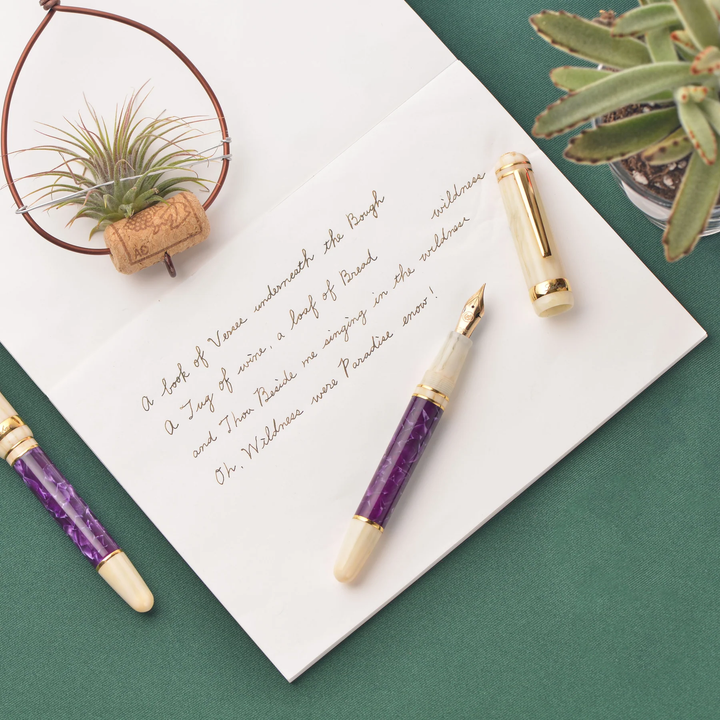 A book of Verses underneath the Bough
A Jug of wine, a loaf of Bread
and Thou Beside me singing in the wildness
wildness
Oh, Wildness were Paradise enow!